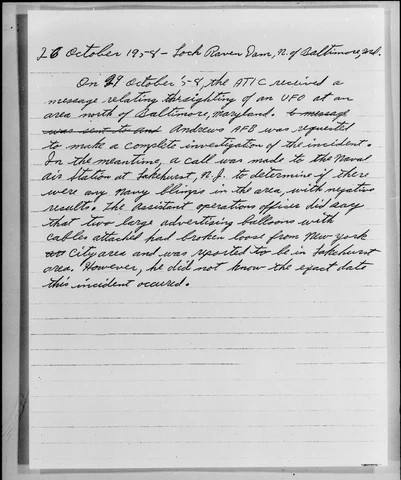 26 October 1958 - Loch Raven Dam, N. of Baltimore, Md.
On 29 October '58, the ATIC received a
message relating the sighting of an UFO at an
area north of Baltimore, Maryland. A message
was sent to and Andrews AFB was requested
to make a complete investigation of the incident.
In the meantime, a call was made to the Naval
Air Station at Lakehurst, N.J. to determine if there
were any Navy blimps in the area, with negative
results. The assistant operations officer did say
that two large advertising balloons with
cables attached had broken loose from New York
City area and was reported to be in Lakehurst
area. However, he did not know the exact date
this incident occured.